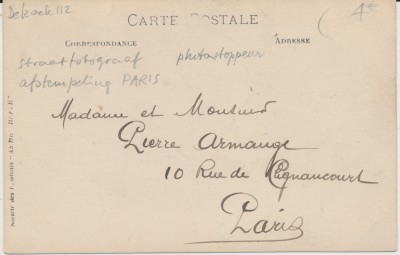 CARTE POSTALE
4€
CORRESPONDANCE
ADRESSE
straatfotograaf photostoppeur
afstempeling PARIS
Madame et Monsieur
Pierre Armange
10 Rue de Clignancourt
Paris